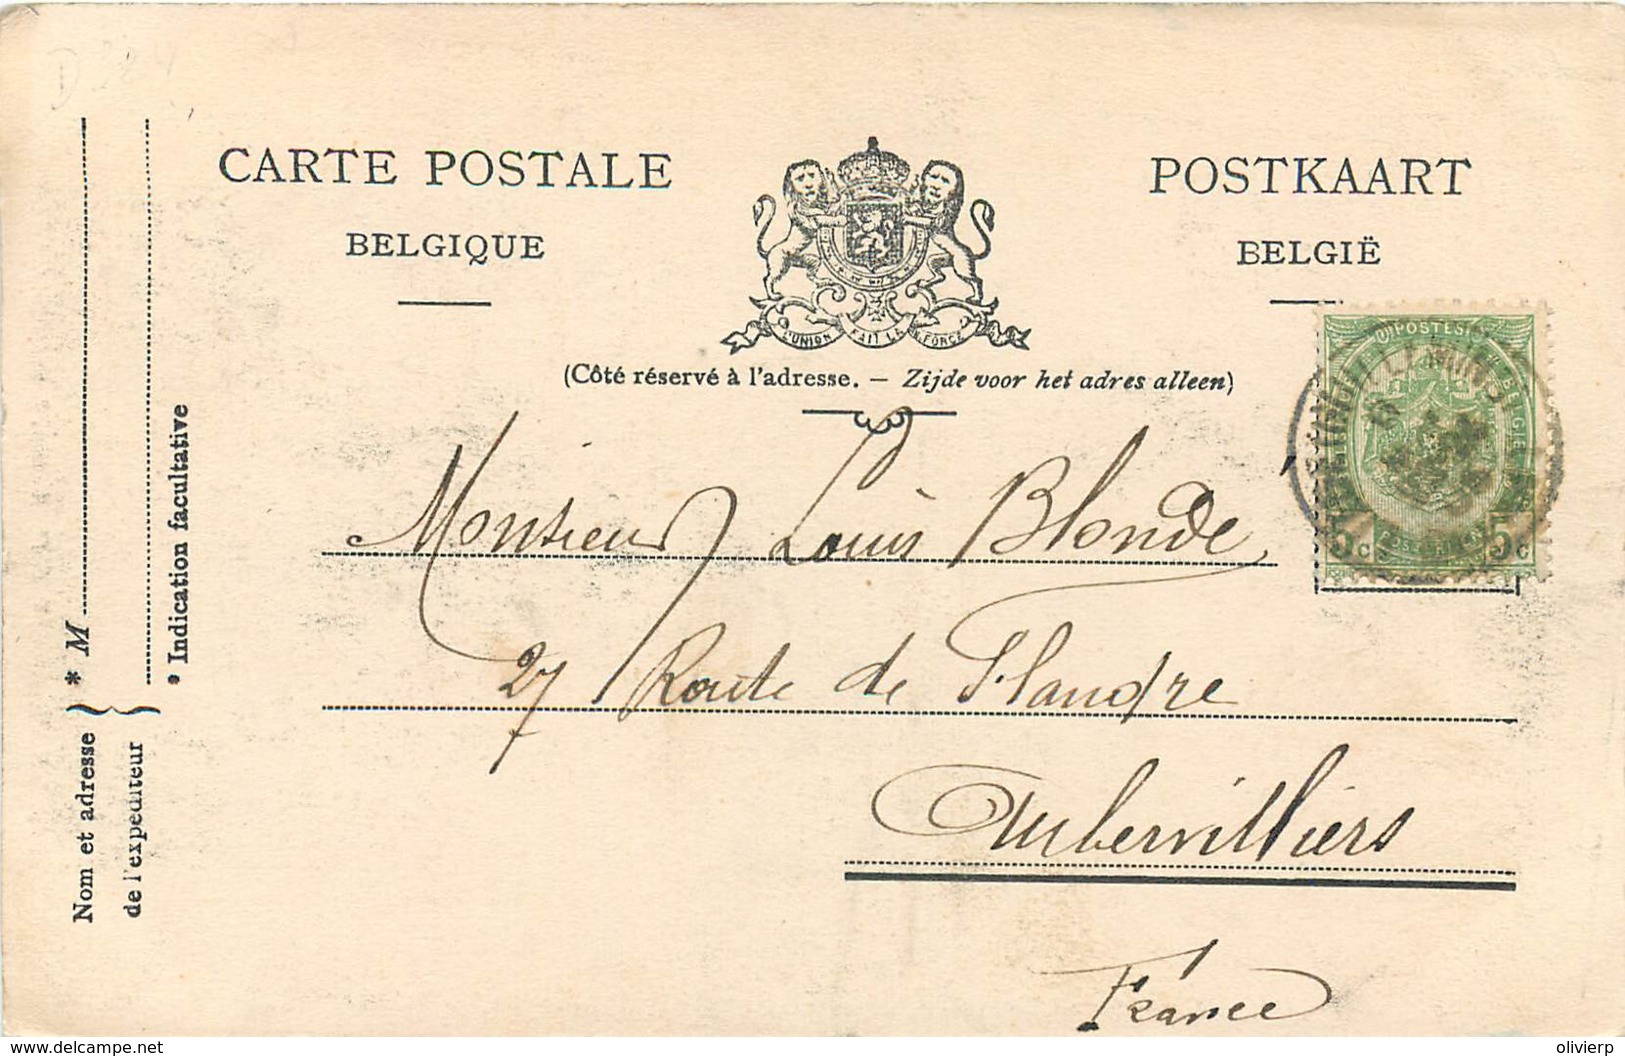 CARTE POSTALE
BELGIQUE
POSTKAART
BELGIË
L'UNION FAIT LA FORCE
(Côté réservé à l'adresse. — Zijde voor het adres alleen)
POSTES
BELGIE
5c 5c
Monsieur Louis Blonde
27 Route de Flandre
Aubervilliers
France
* M
Nom et adresse
de l'expéditeur
* Indication facultative
www.delcampe.net
olivierp